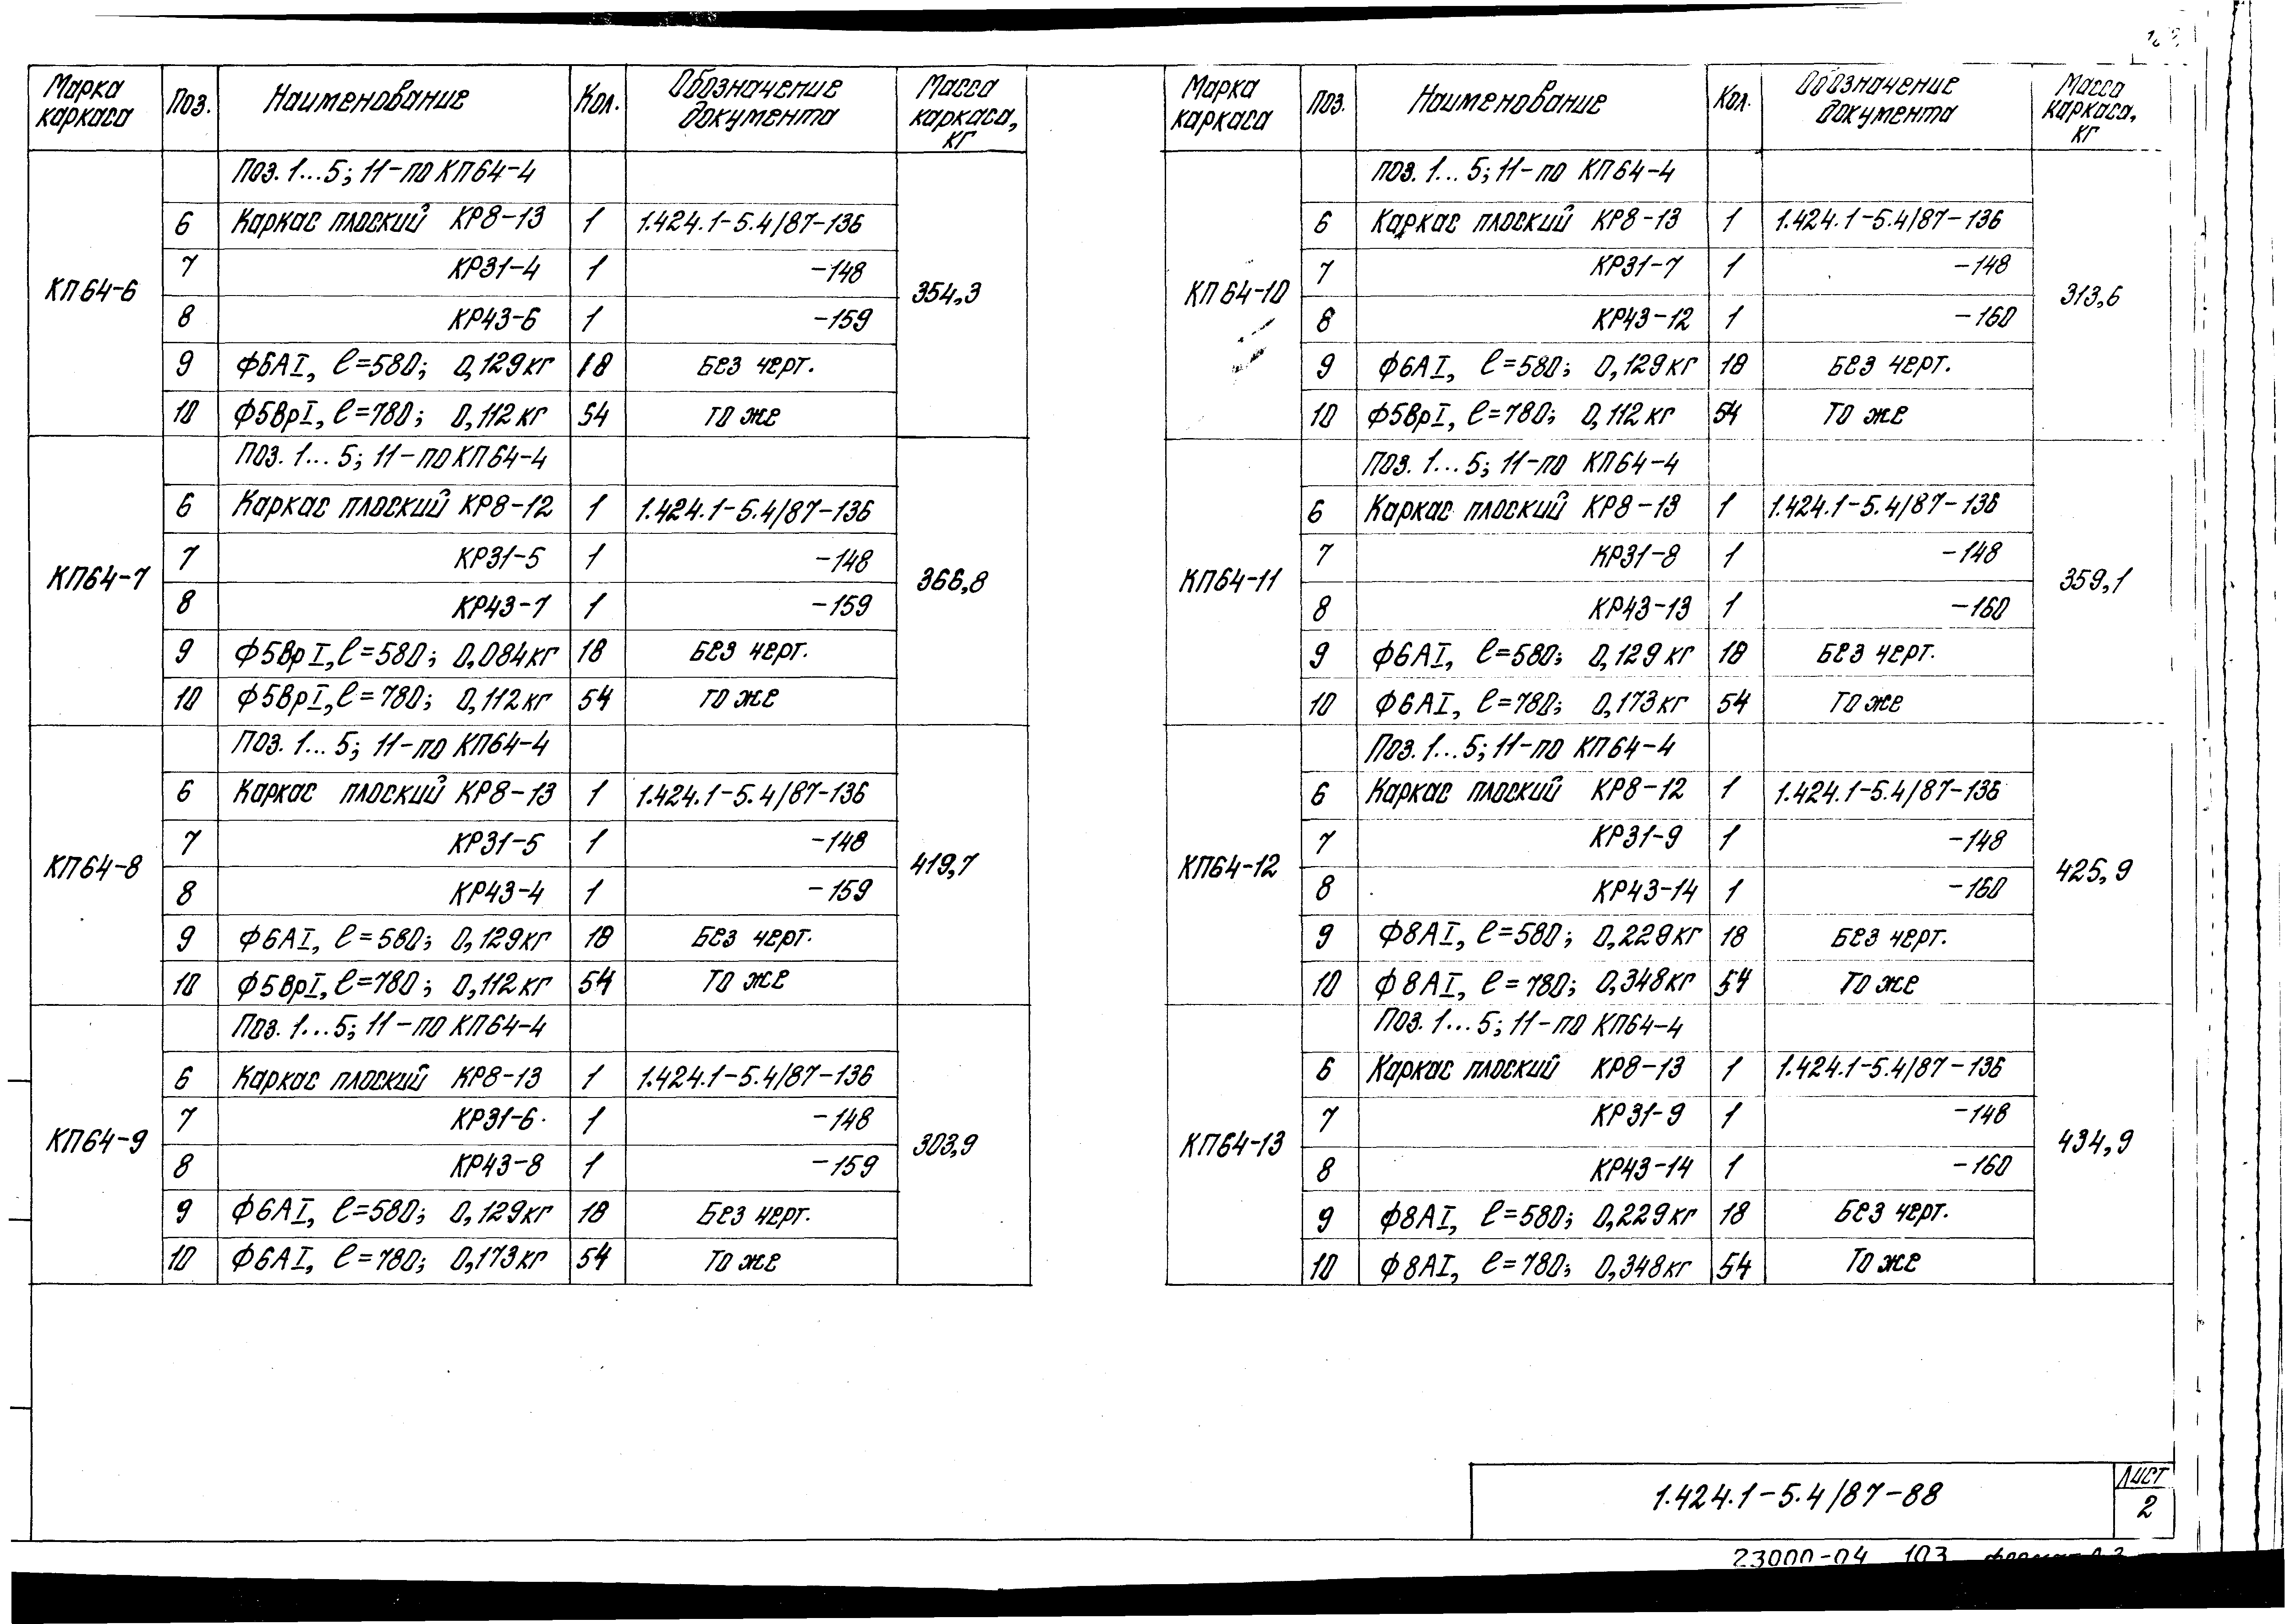 Марка каркаса Поз. Наименование Кол. Обозначение документа Масса каркаса, кг
КП64-6 354,3
Поз. 1...5; 11-по КП64-4
6 Каркас плоский КР8-13 1 1.424.1-5.4/87-136
7 КР31-4 1 -148
8 КР43-6 1 -159
9 Ф6АI, ℓ=580; 0,129кг 18 Без черт.
10 Ф5ВрI, ℓ=780; 0,112кг 54 То же
КП64-7 366,8
Поз. 1...5; 11-по КП64-4
6 Каркас плоский КР8-12 1 1.424.1-5.4/87-136
7 КР31-5 1 -148
8 КР43-7 1 -159
9 Ф5ВрI, ℓ=580; 0,084кг 18 Без черт.
10 Ф5ВрI, ℓ=780; 0,112кг 54 То же
КП64-8 419,7
Поз. 1...5; 11-по КП64-4
6 Каркас плоский КР8-13 1 1.424.1-5.4/87-136
7 КР31-5 1 -148
8 КР43-4 1 -159
9 Ф6АI, ℓ=580; 0,129кг 18 Без черт.
10 Ф5ВрI, ℓ=780; 0,112кг 54 То же
КП64-9 303,9
Поз. 1...5; 11-по КП64-4
6 Каркас плоский КР8-13 1 1.424.1-5.4/87-136
7 КР31-6 1 -148
8 КР43-8 1 -159
9 Ф6АI, ℓ=580; 0,129кг 18 Без черт.
10 Ф6АI, ℓ=780; 0,173кг 54 То же
Марка каркаса Поз. Наименование Кол. Обозначение документа Масса каркаса, кг
КП64-10 313,6
Поз. 1...5; 11-по КП64-4
6 Каркас плоский КР8-13 1 1.424.1-5.4/87-136
7 КР31-7 1 -148
8 КР43-12 1 -160
9 Ф6АI, ℓ=580; 0,129кг 18 Без черт.
10 Ф5ВрI, ℓ=780; 0,112кг 54 То же
КП64-11 359,1
Поз. 1...5; 11-по КП64-4
6 Каркас плоский КР8-13 1 1.424.1-5.4/87-136
7 КР31-8 1 -148
8 КР43-13 1 -160
9 Ф6АI, ℓ=580; 0,129кг 18 Без черт.
10 Ф6АI, ℓ=780; 0,173кг 54 То же
КП64-12 425,9
Поз. 1...5; 11-по КП64-4
6 Каркас плоский КР8-12 1 1.424.1-5.4/87-136
7 КР31-9 1 -148
8 КР43-14 1 -160
9 Ф8АI, ℓ=580; 0,229кг 18 Без черт.
10 Ф8АI, ℓ=780; 0,348кг 54 То же
КП64-13 434,9
Поз. 1...5; 11-по КП64-4
6 Каркас плоский КР8-13 1 1.424.1-5.4/87-136
7 КР31-9 1 -148
8 КР43-14 1 -160
9 Ф8АI, ℓ=580; 0,229кг 18 Без черт.
10 Ф8АI, ℓ=780; 0,348кг 54 То же
1.424.1-5.4/87-88
Лист
2
23000-04 103